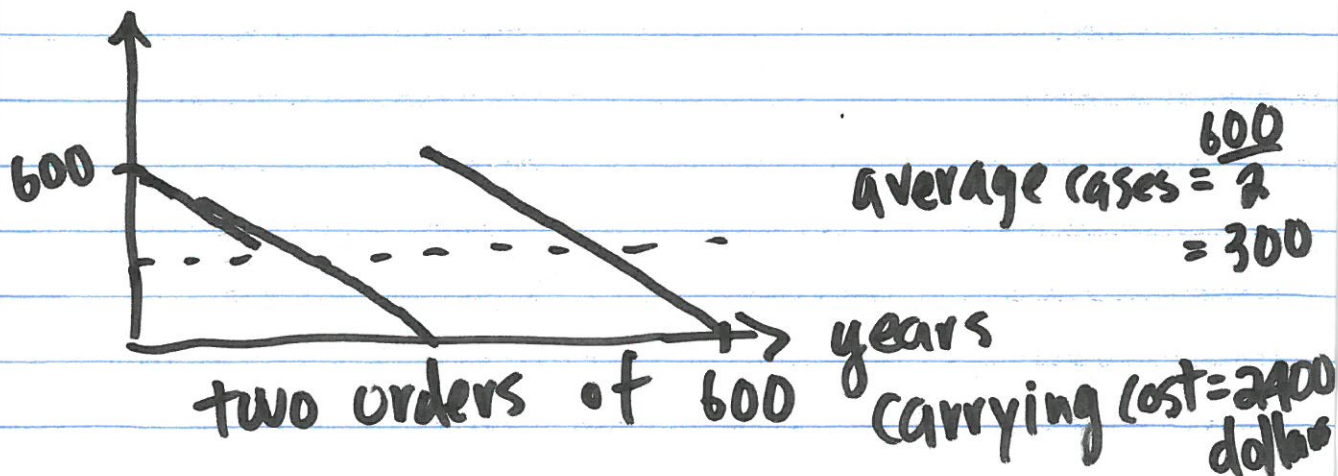 600
average cases = 600/2
= 300
years
two orders of 600
carrying cost = 2400
dollars